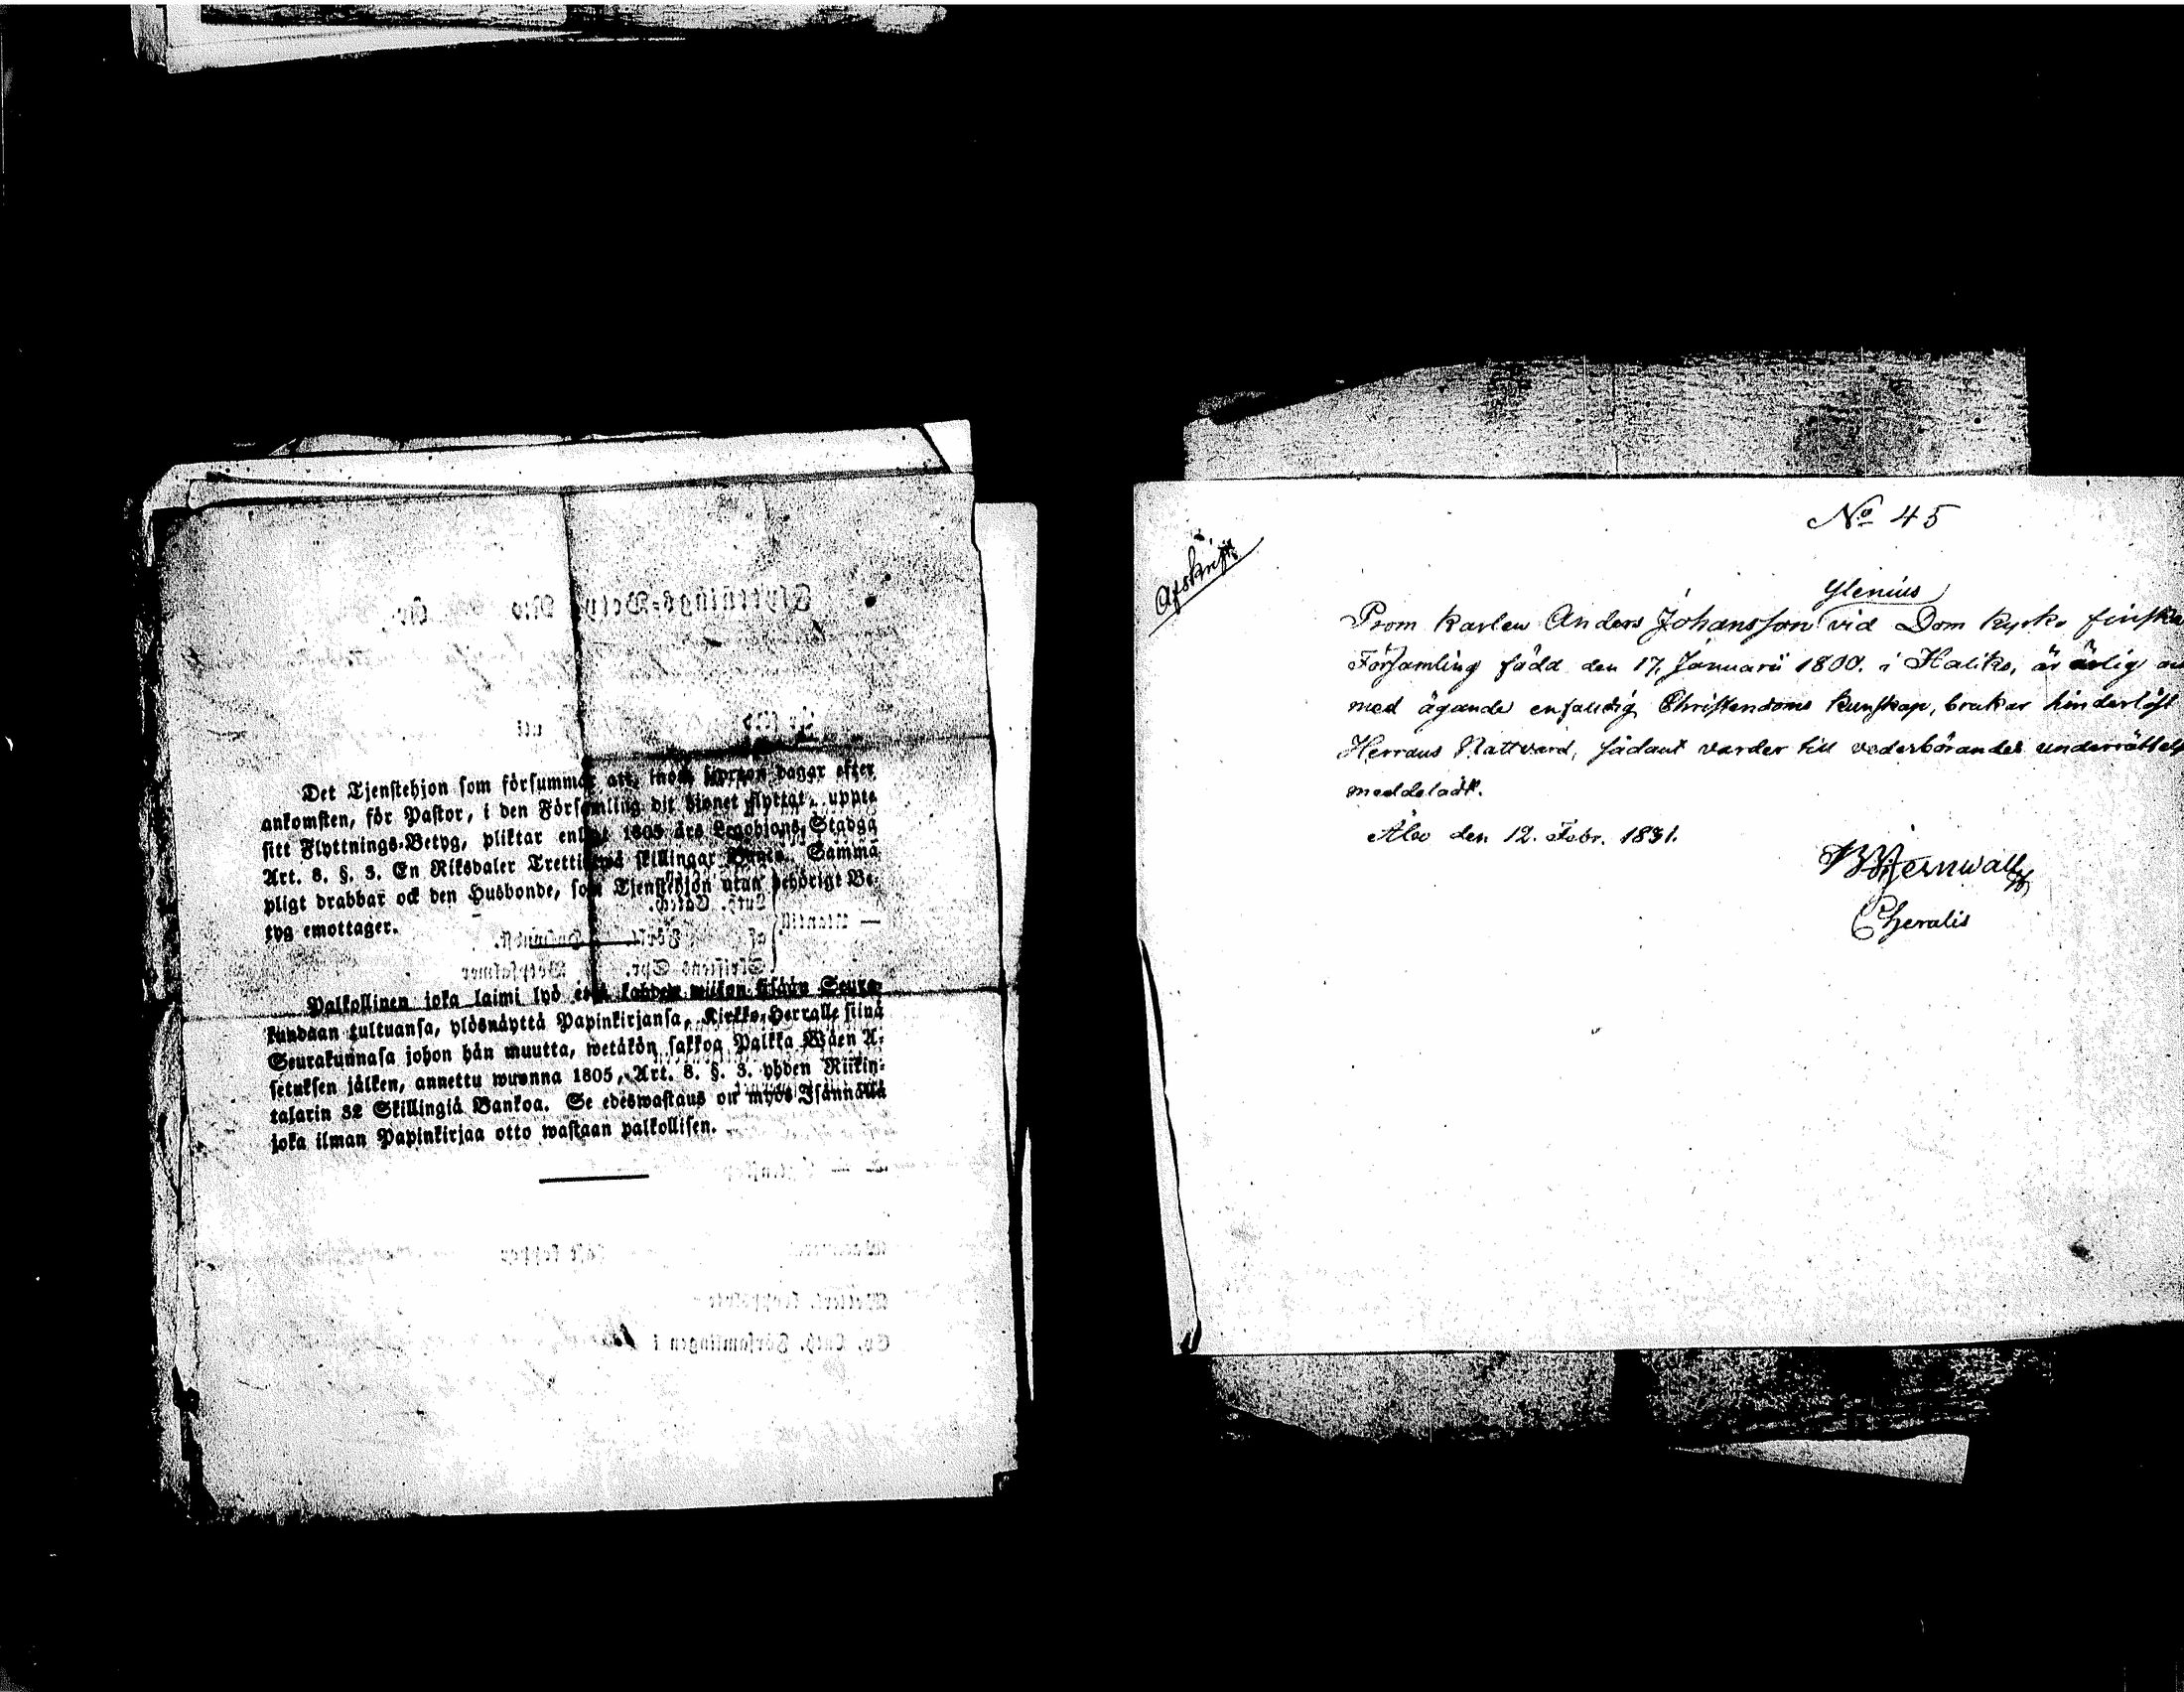 Det Tjenstehjon som försummar att, inom fjorton dagar efter
ankomsten, för Pastor, i den Församling dit hjonet flyttat, uppte
sitt Flyttnings-Betyg, pliktar enligt 1805 års Legohjons-Stadga
Art. 8. §. 3. En Riksdaler Trettitwå skillingar Banco. Samma
pligt drabbar ock den Husbonde, som Tjenstehjon utan behörigt Be-
tyg emottager.
Palkollinen joka laimi lyö että kahden wiikon sisään Seura-
kundaan tultuansa, ylösnäyttä Papinkirjansa, Kirkko-Herralle siinä
Seurakunnasa johon hän muutta, wetäkön sakkoa Palkka Wäen A-
setuksen jälken, annettu wuonna 1805, Art. 8. §. 3. yhden Riikin-
talarin 32 Skillingiä Bankoa. Se edeswastaus on myös Isännällä
joka ilman Papinkirjaa otto wastaan palkollisen.
Afskrift
No 45
Glenius
From karlen Anders Johansson vid Dom kyrko finska
Församling född den 17. Januarii 1800. i Haliko, är ärlig
med ägande enfaldig Christendoms kunskap, brukar hinderlöst
Herrans Nattvard, sådant varder till vederbörandes underrättelse
meddeladt.
Åbo den 12. Febr. 1831.